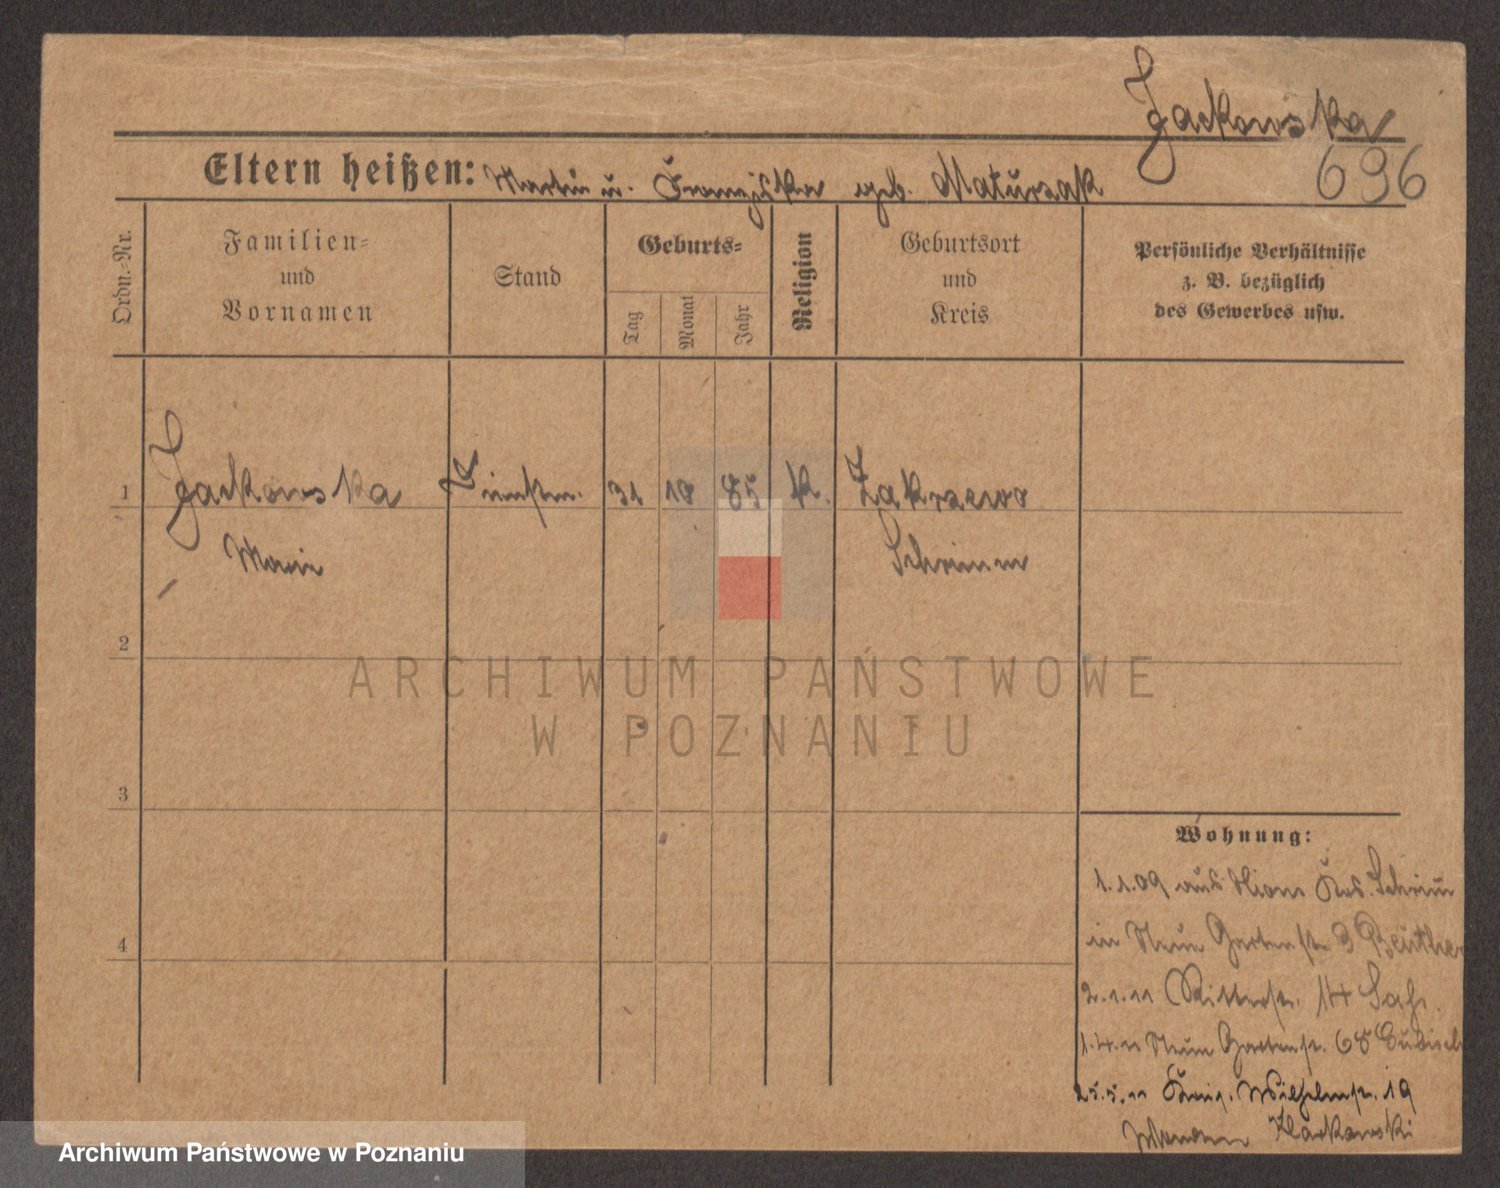 Jackowska
696
Eltern heißen: Martin u. Franziska geb. Maturzak
Ordn.-Nr.
Familien-
und
Vornamen
Stand
Geburts-
Tag
Monat
Jahr
Religion
Geburtsort
und
Kreis
Persönliche Verhältnisse
z. B. bezüglich
des Gewerbes usw.
1
Jackowska
31 10 85 k. Zakrzewo
Marie
Schrimm
2
ARCHIWUM PAŃSTWOWE
W POZNANIU
3
Wohnung:
1.1.09 aus Krs. Schrimm
in Neue Gartenstr. 3
4
2.1.11 Ritterstr. 14
1.4.11 Neue Gartenstr. 68
25.5.11 Wilhelmstr. 19
Archiwum Państwowe w Poznaniu